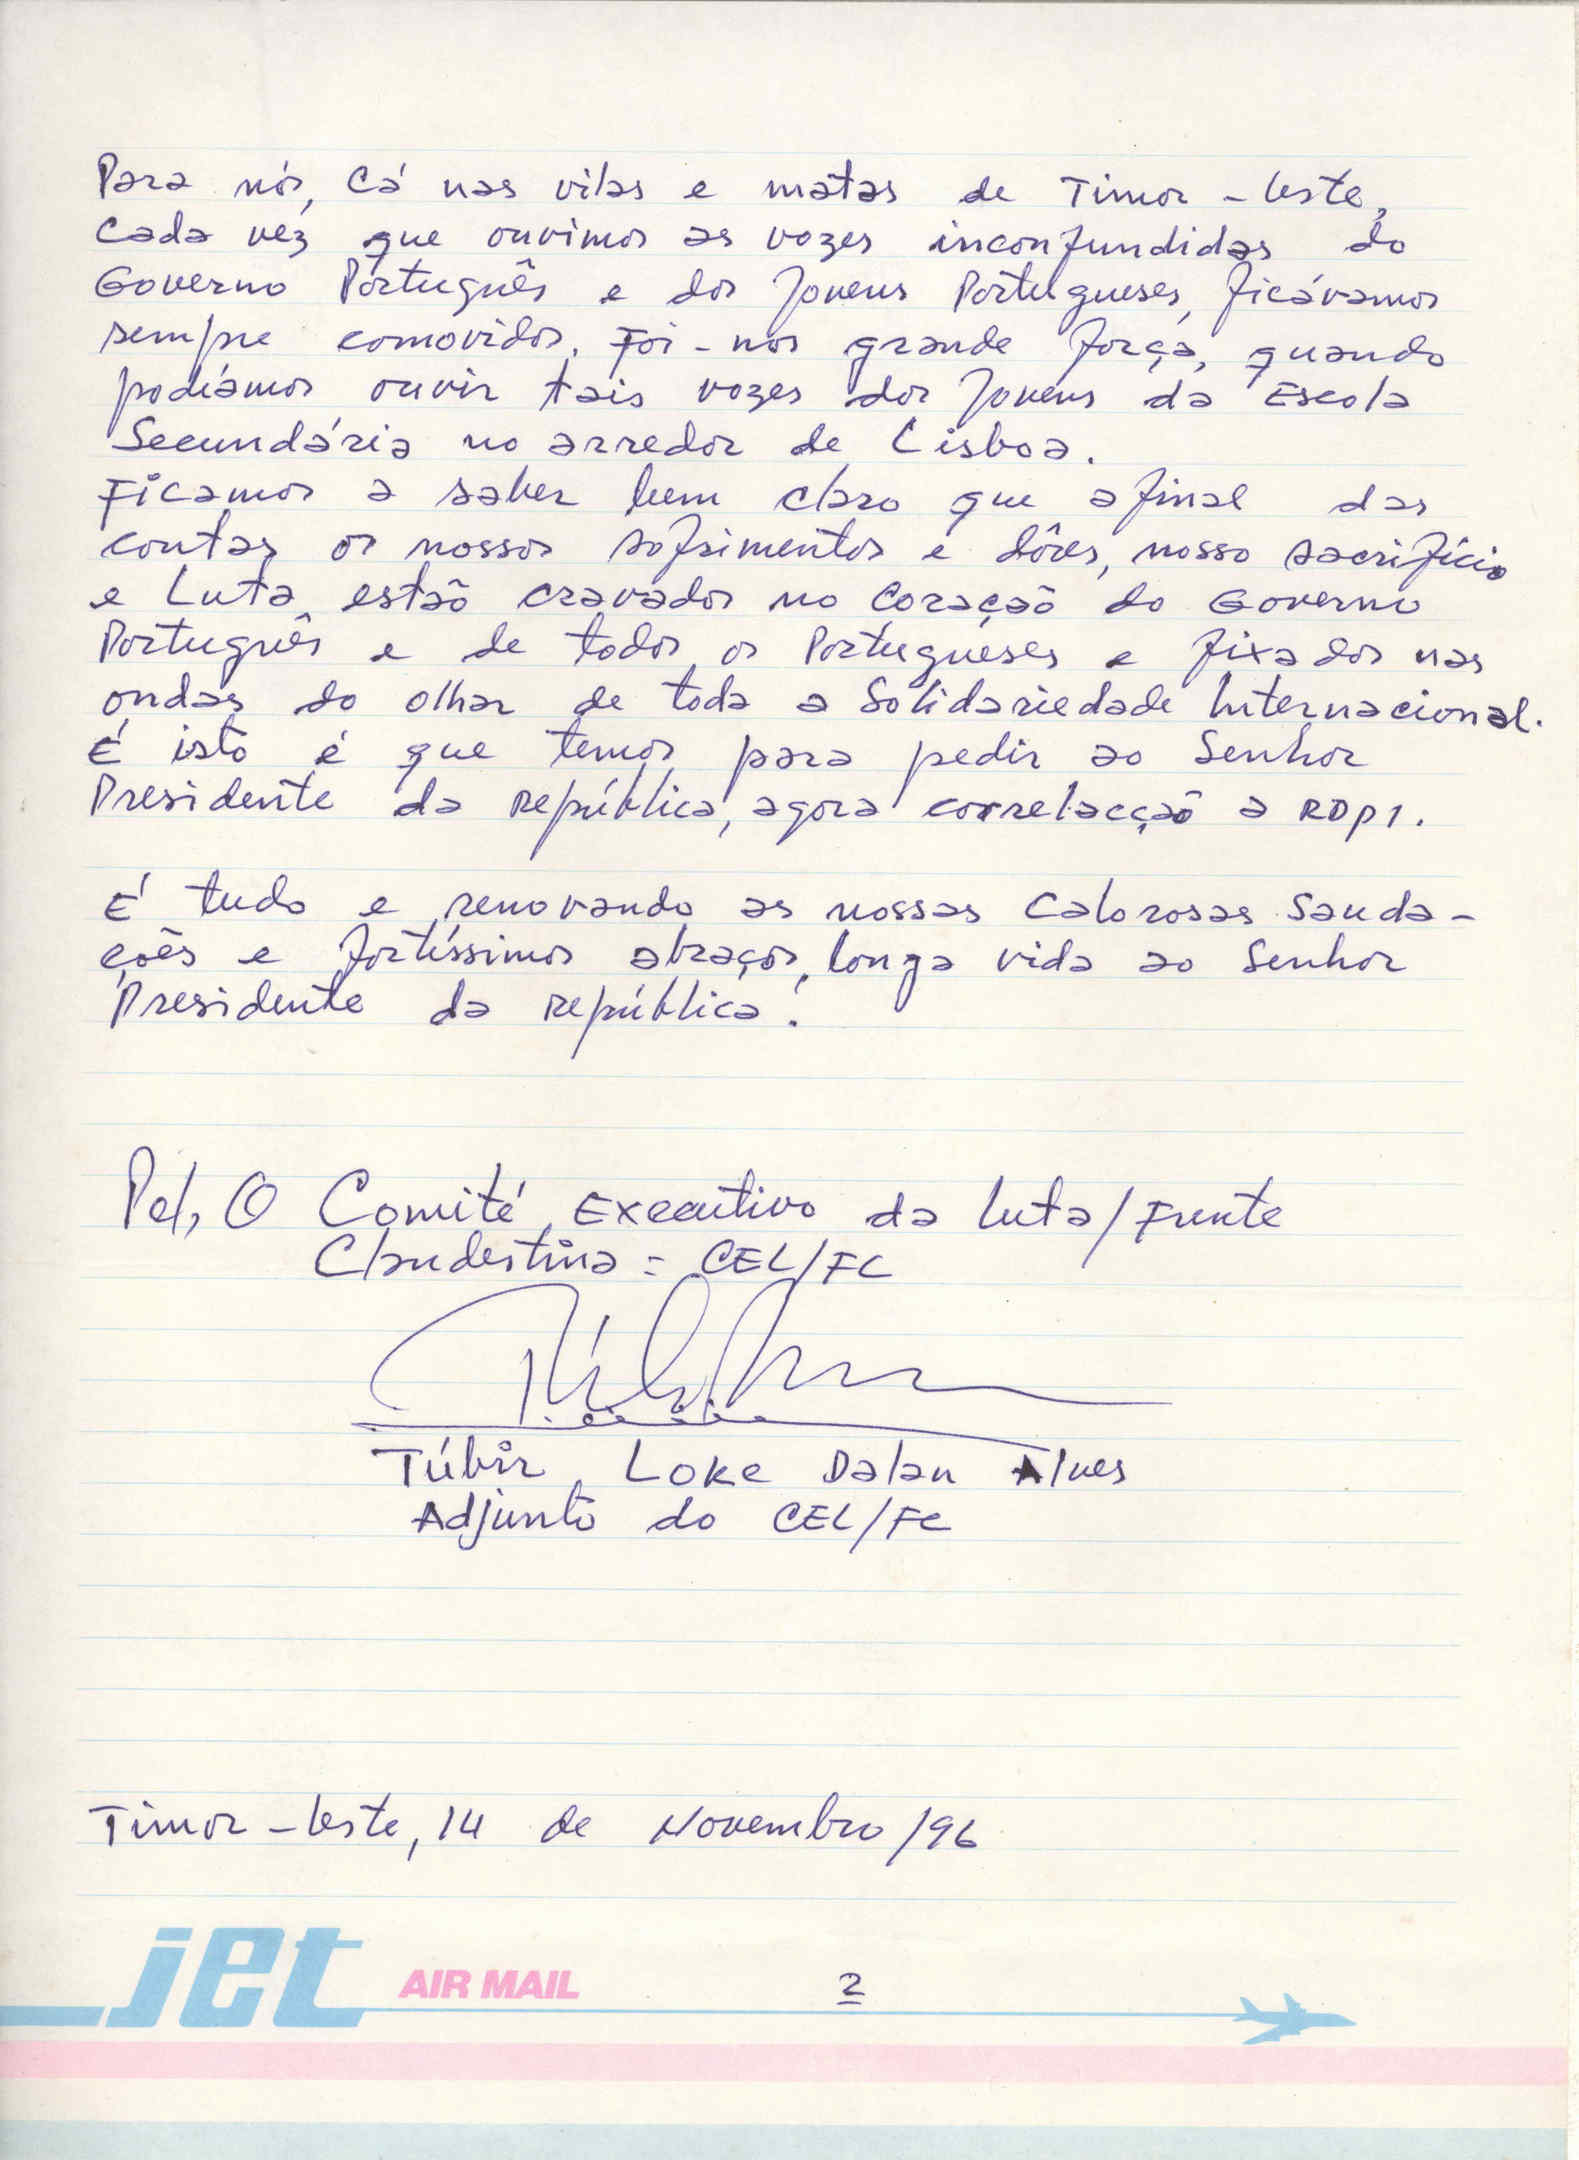 Para nós, Cá nas vilas e matas de Timor-Leste,
Cada vez que ouvimos as vozes inconfundidas do
Governo Português e dos Jovens Portugueses, ficávamos
sempre comovidos. Foi-nos grande força, quando
podíamos ouvir tais vozes dos Jovens da Escola
Secundária no arredor de Lisboa.
Ficamos a saber bem claro que afinal das
contas os nossos sofrimentos e dôres, nosso sacrifício
e Luta, estaõ cravados no Coraçaõ do Governo
Português e de todos os Portugueses e fixados nas
ondas do olhar de toda a Solidariedade Internacional.
É isto é que temos para pedir ao Senhor
Presidente da República, agora correlacçaõ a RDP1.
É tudo e renovando as nossas Calorosas Sauda-
çoẽs e fortíssimos abraços, longa vida ao Senhor
Presidente da República!
Pel, O Comité Executivo da Luta/Frente
Clandestina = CEL/FC
Túbir Loke Dalan Alves
Adjunto do CEL/FC
Timor-Leste, 14 de Novembro/96
jet AIR MAIL 2